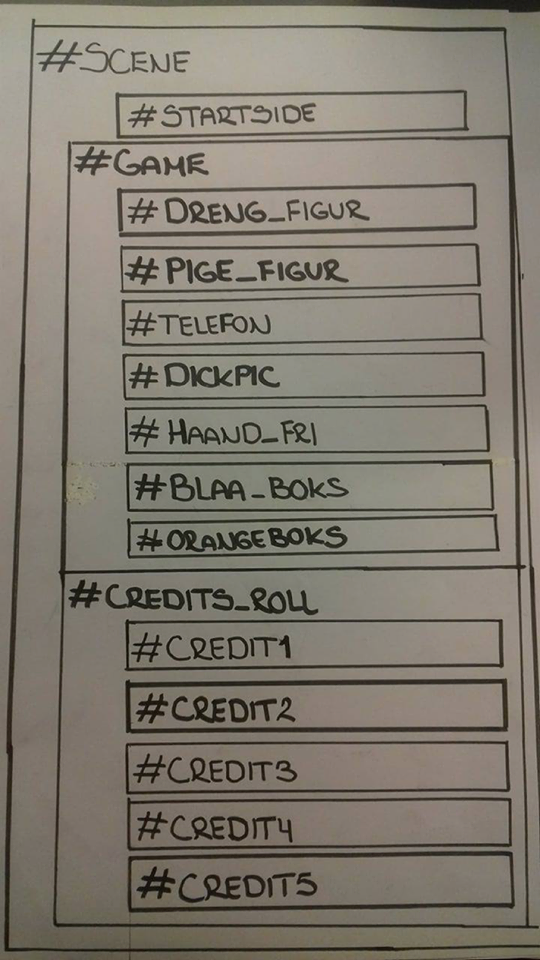 #SCENE
#STARTSIDE
#GAME
#DRENG_FIGUR
#PIGE_FIGUR
#TELEFON
#DICKPIC
#HAAND_FRI
#BLAA_BOKS
#ORANGEBOKS
#CREDITS_ROLL
#CREDIT1
#CREDIT2
#CREDIT3
#CREDIT4
#CREDIT5